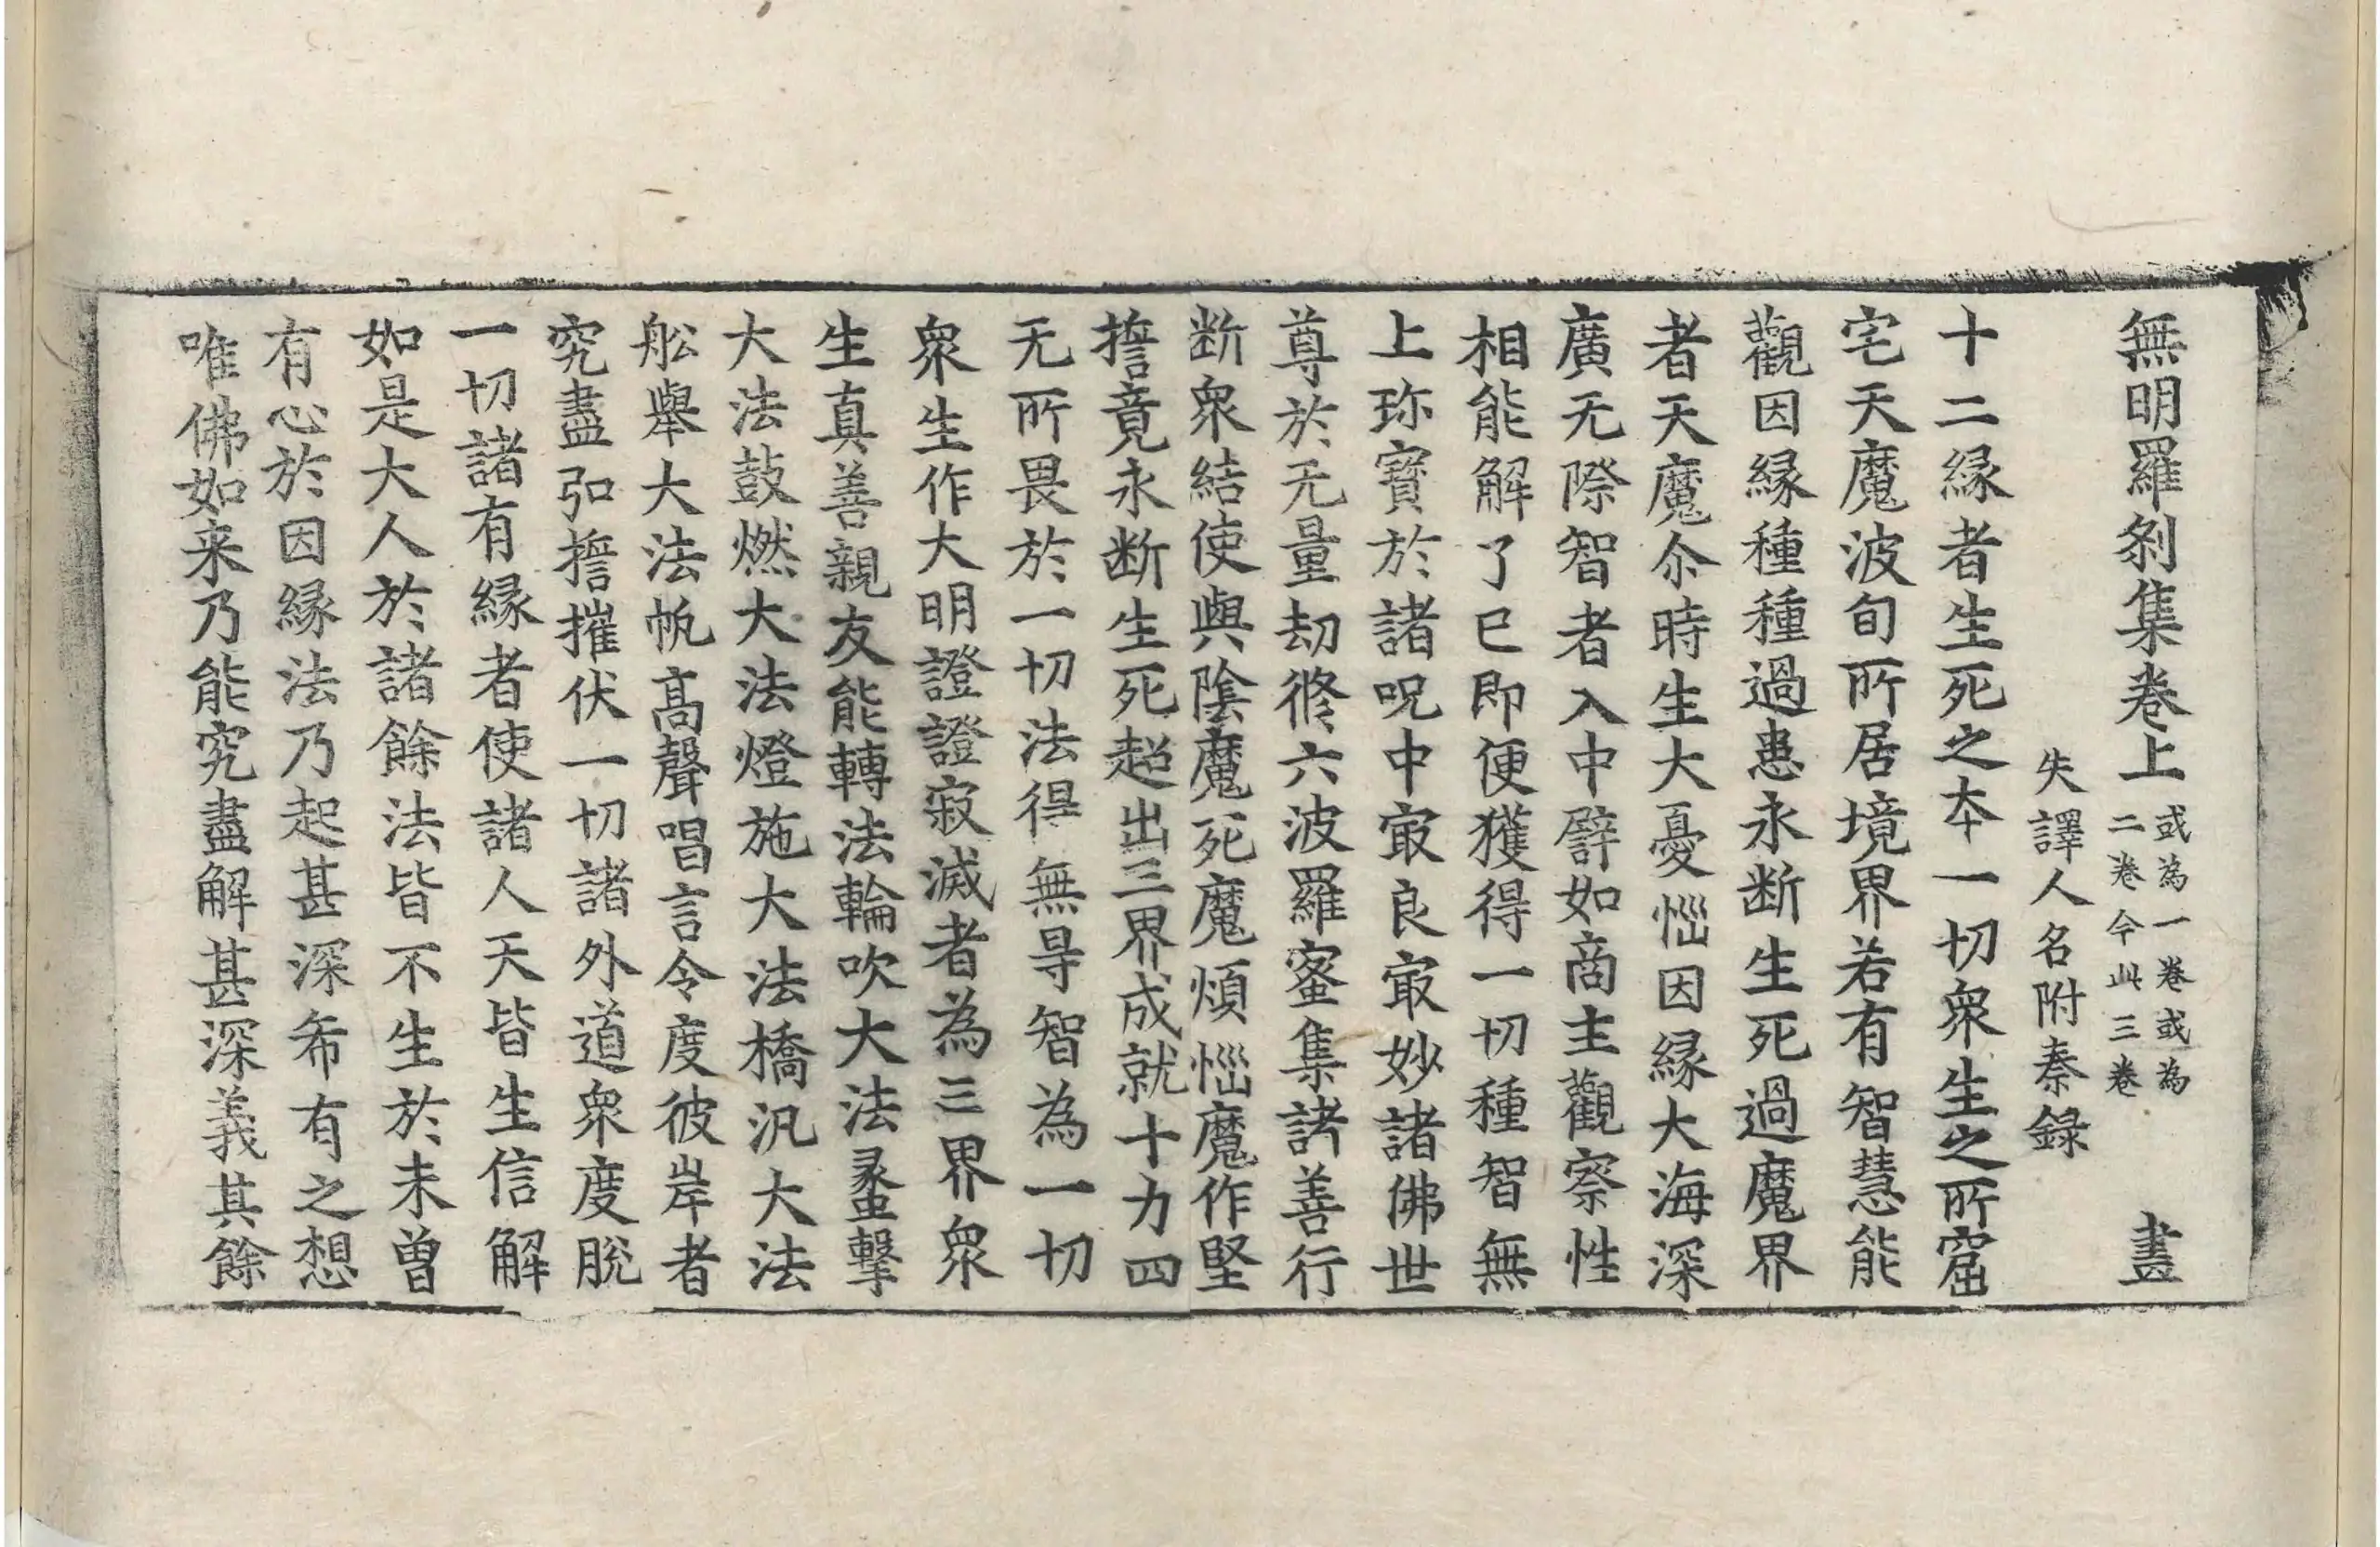 無明羅刹集卷上 或為一卷或為二卷今此三卷 盡
失譯人名附秦録
十二縁者生死之本一切衆生之所窟
宅天魔波旬所居境界若有智慧能
觀因縁種種過患永断生死過魔界
者天魔尒時生大憂惱因縁大海深
廣无際智者入中譬如商主觀察性
相能解了已即便獲得一切種智無
上珎寶於諸呪中㝡良㝡妙諸佛世
尊於无量劫脩六波羅蜜集諸善行
断衆結使與陰魔死魔煩惱魔作堅
誓竟永断生死超出三界成就十力四
无所畏於一切法得無㝵智為一切
衆生作大明證證寂滅者為三界衆
生真善親友能轉法輪吹大法䗍擊
大法鼓燃大法燈施大法橋汎大法
舩舉大法帆髙聲唱言令度彼岸者
究盡弘誓摧伏一切諸外道衆度脱
一切諸有縁者使諸人天皆生信解
如是大人於諸餘法皆不生於未曽
有心於因縁法乃起甚深希有之想
唯佛如来乃能究盡解甚深義其餘